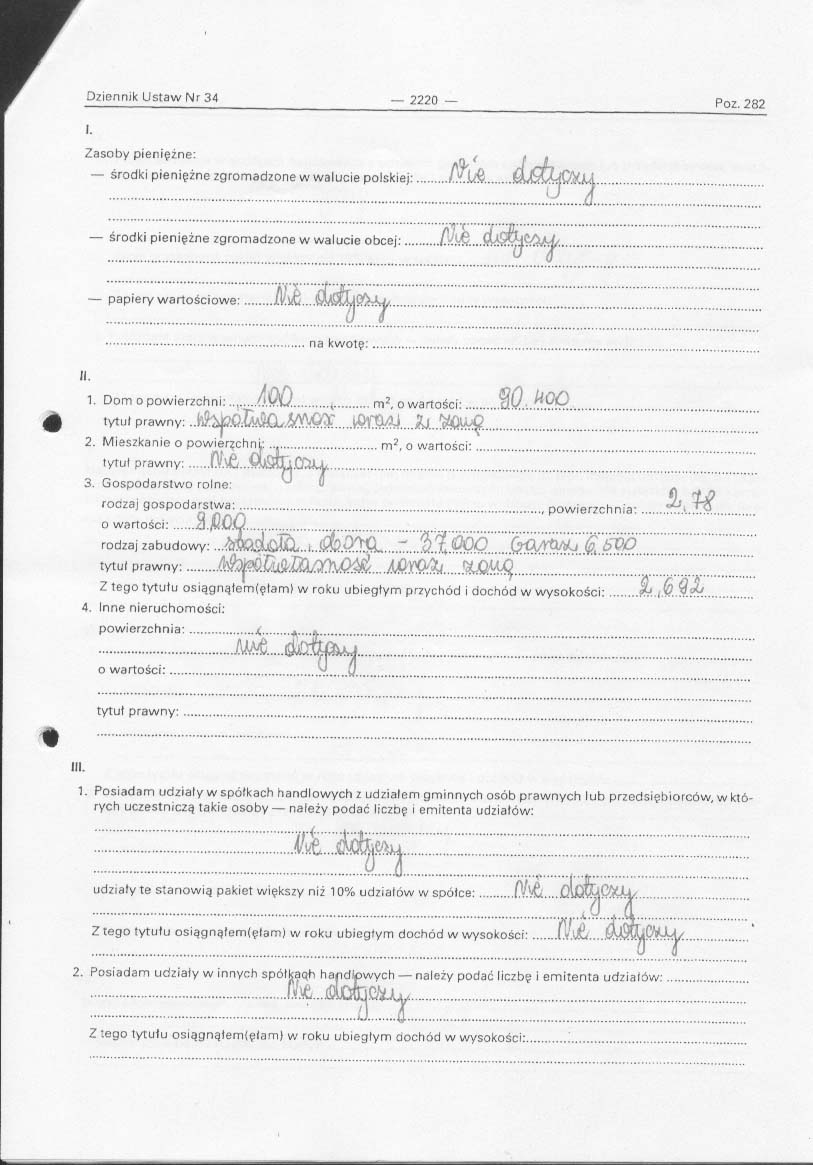 Dziennik Ustaw Nr 34 — 2220 — Poz. 282
I.
Zasoby pieniężne:
— środki pieniężne zgromadzone w walucie polskiej: Nie dotyczy
— środki pieniężne zgromadzone w walucie obcej: Nie dotyczy
— papiery wartościowe: Nie dotyczy
na kwotę:
II.
1. Dom o powierzchni: 100 m², o wartości: 90.400
tytuł prawny: wraz z żoną
2. Mieszkanie o powierzchni: m², o wartości:
tytuł prawny: Nie dotyczy
3. Gospodarstwo rolne:
rodzaj gospodarstwa: , powierzchnia: 2,78
o wartości: 9.000
rodzaj zabudowy: stodoła, obora - 37.000 Garaż 6,500
tytuł prawny: Współwłasność wraz żoną
Z tego tytułu osiągnąłem(ęłam) w roku ubiegłym przychód i dochód w wysokości: 2,692
4. Inne nieruchomości:
powierzchnia:
nie dotyczy
o wartości:
tytuł prawny:
III.
1. Posiadam udziały w spółkach handlowych z udziałem gminnych osób prawnych lub przedsiębiorców, w któ-
rych uczestniczą takie osoby — należy podać liczbę i emitenta udziałów:
Nie dotyczy
udziały te stanowią pakiet większy niż 10% udziałów w spółce: Nie dotyczy
Z tego tytułu osiągnąłem(ęłam) w roku ubiegłym dochód w wysokości: Nie dotyczy
2. Posiadam udziały w innych spółkach handlowych — należy podać liczbę i emitenta udziałów:
Nie dotyczy
Z tego tytułu osiągnąłem(ęłam) w roku ubiegłym dochód w wysokości: